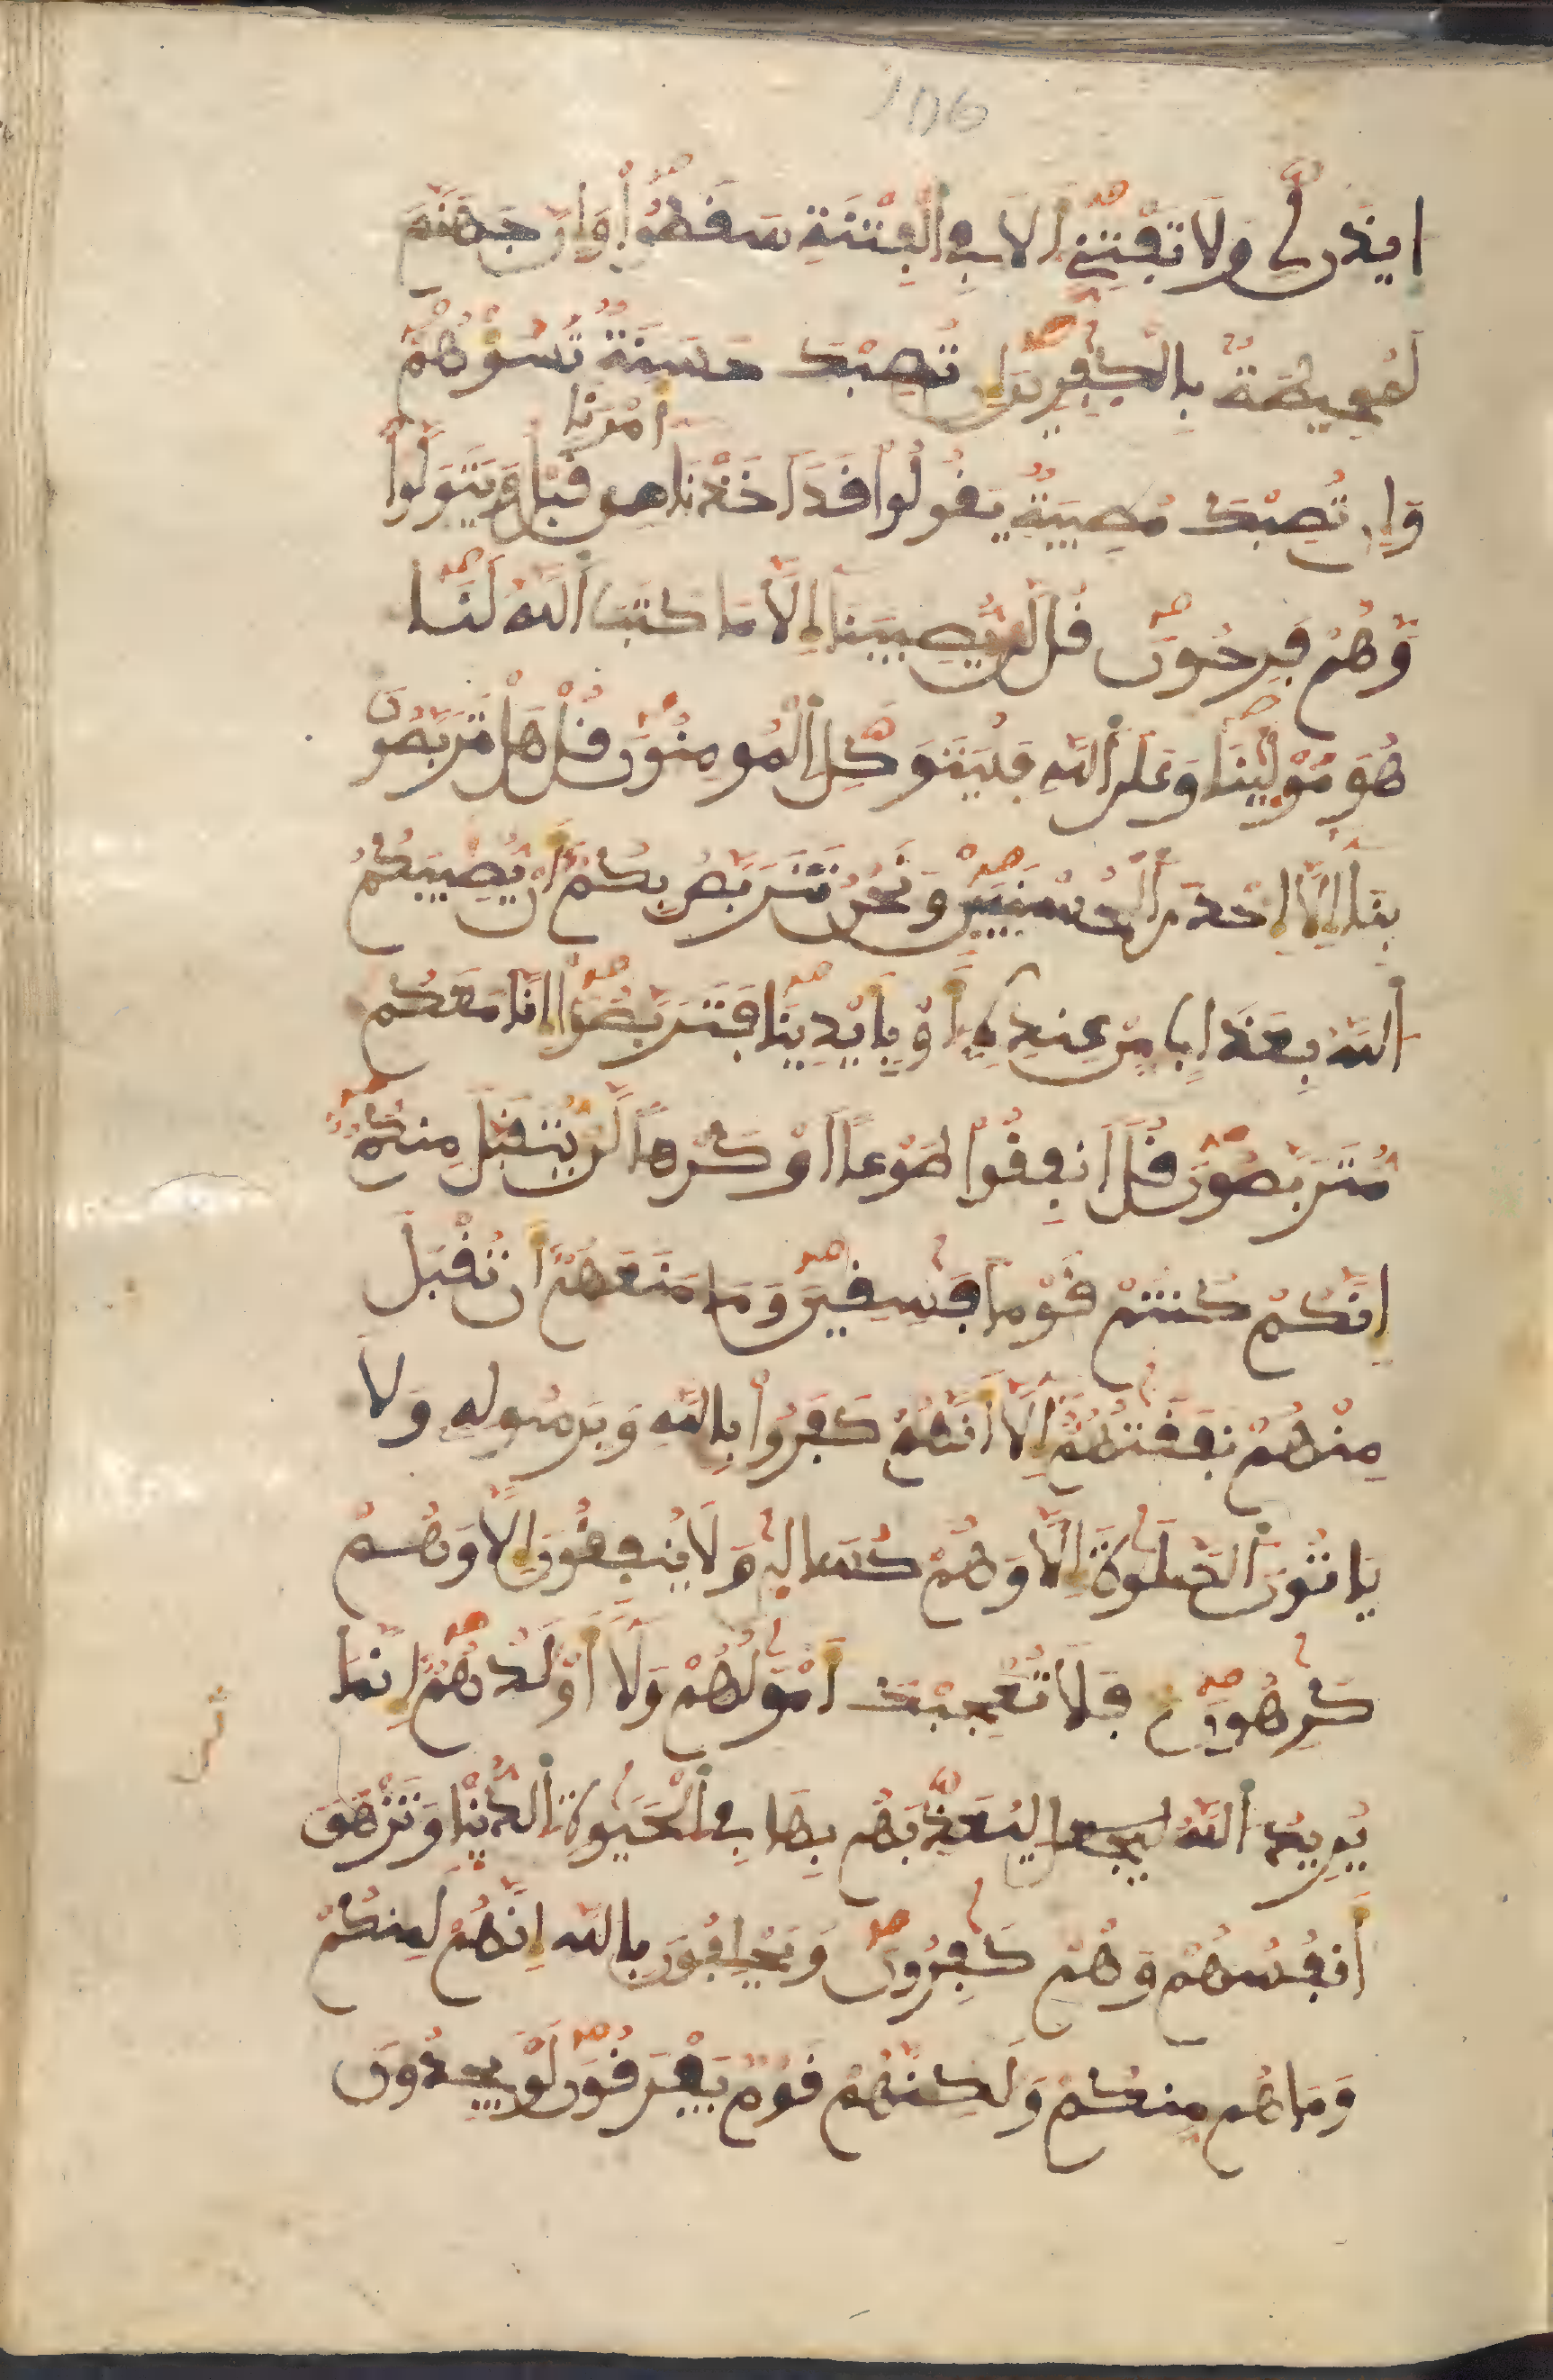 106
ايذن لي ولا تفتني ألا في ألفتنة سقطوا وإن جهنم
لمحيطة بالكفرين إن تصبك حسنة تسؤهم
أمرنا
وإن تصبك مصيبة يقولوا قد اخذنا من قبل ويتولوا
وهم فرحون قل لن يصيبنا إلا ما كتب ألله لنا
هو مولينا وعلى ألله فليتوكل ألمومنون قل هل تربصون
بنا إلا إحدى ألحسنيين ونحن نتربص بكم أن يصيبكم
ألله بعذاب من عنده أو بأيدينا فتربصوا إنا معكم
متربصون قل انفقوا طوعا او كرها لن يتقبل منكم
إنكم كنتم قوما فسقين وما منعهم أن تقبل
منهم نفقتهم إلا أنهم كفروا بالله وبرسوله ولا
ياتون ألصلوة إلا وهم كسالى ولا ينفقون إلا وهم
كرهون فلا تعجبك أمولهم ولا أولدهم إنما
يريد ألله ليعذبهم بها في ألحيوة ألدنيا وتزهق
أنفسهم وهم كفرون ويحلفون بالله إنهم لمنكم
وما هم منكم ولكنهم قوم يفرقون لو يجدون